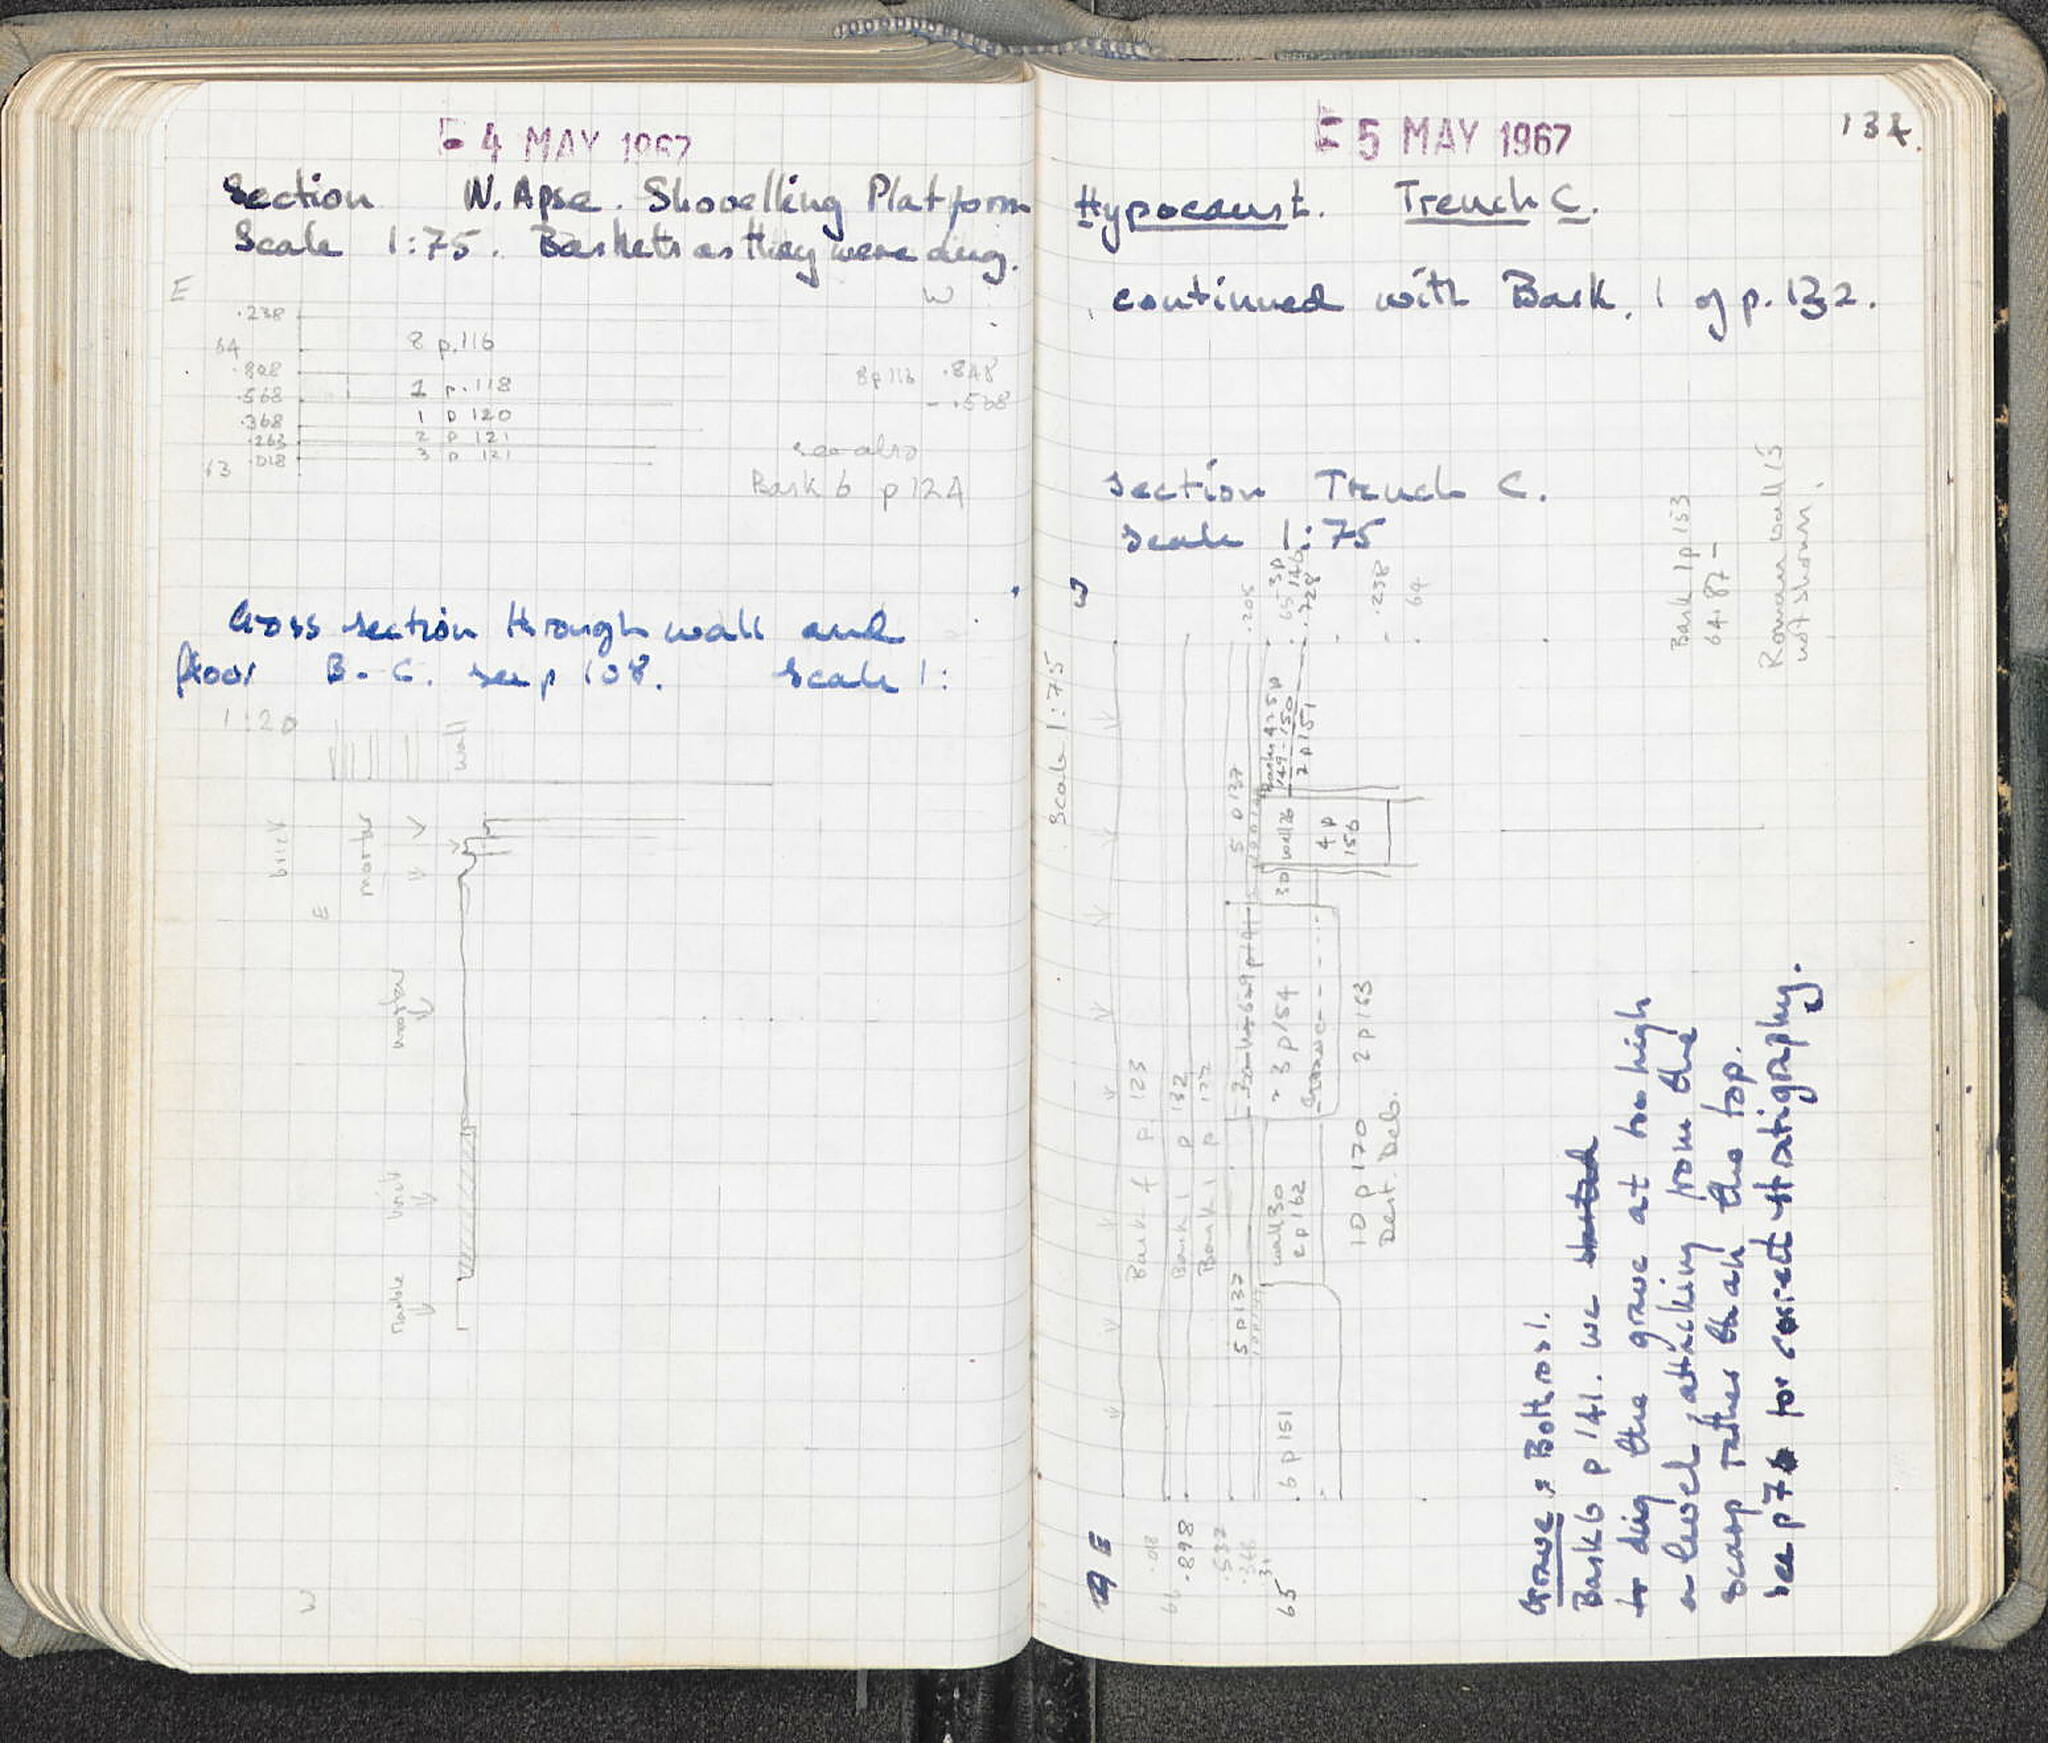 4 MAY 1967
Section N. Apse. Shovelling Platform
Scale 1:75. Baskets as they were dug.
E W
.238
64
8 p.116
.898
.568
1 p.118
8 p 116 .848
- .568
.368
1 p 120
.263
2 p 121
63 .018
3 p 121
see also
Bask 6 p 124
Cross section through wall and
floor B-C. see p 108. Scale 1:
1:20
wall
brick
mortar
E
mortar
brick
Marble
W
5 MAY 1967
134.
Hypocaust. Trench C.
continued with Bask. 1 of p. 132.
Section Trench C.
Scale 1:75
W
Scale 1:75
.205
65 3 p 146
.728
.238
64
Bask 1 p 153
64.87 -
Roman wall is
not shown.
Bask 4 p 123
Bask 1 p 132
Bask 1 p 137
5 p 137
5 p 137
149-150
2 p 151
wall 26
4 p
156
30
3 p 154
Grave
wall 30
2 p 162
10 p 170 2 p 163
Dest. Deb.
6 p 151
E
.018
66
.898
.532
.368
65
Grave, Bothros 1.
Bask 6 p 141. We started
to dig the grave at too high
a level, attacking from the
scarp rather than the top.
see p 76 for correct stratigraphy.